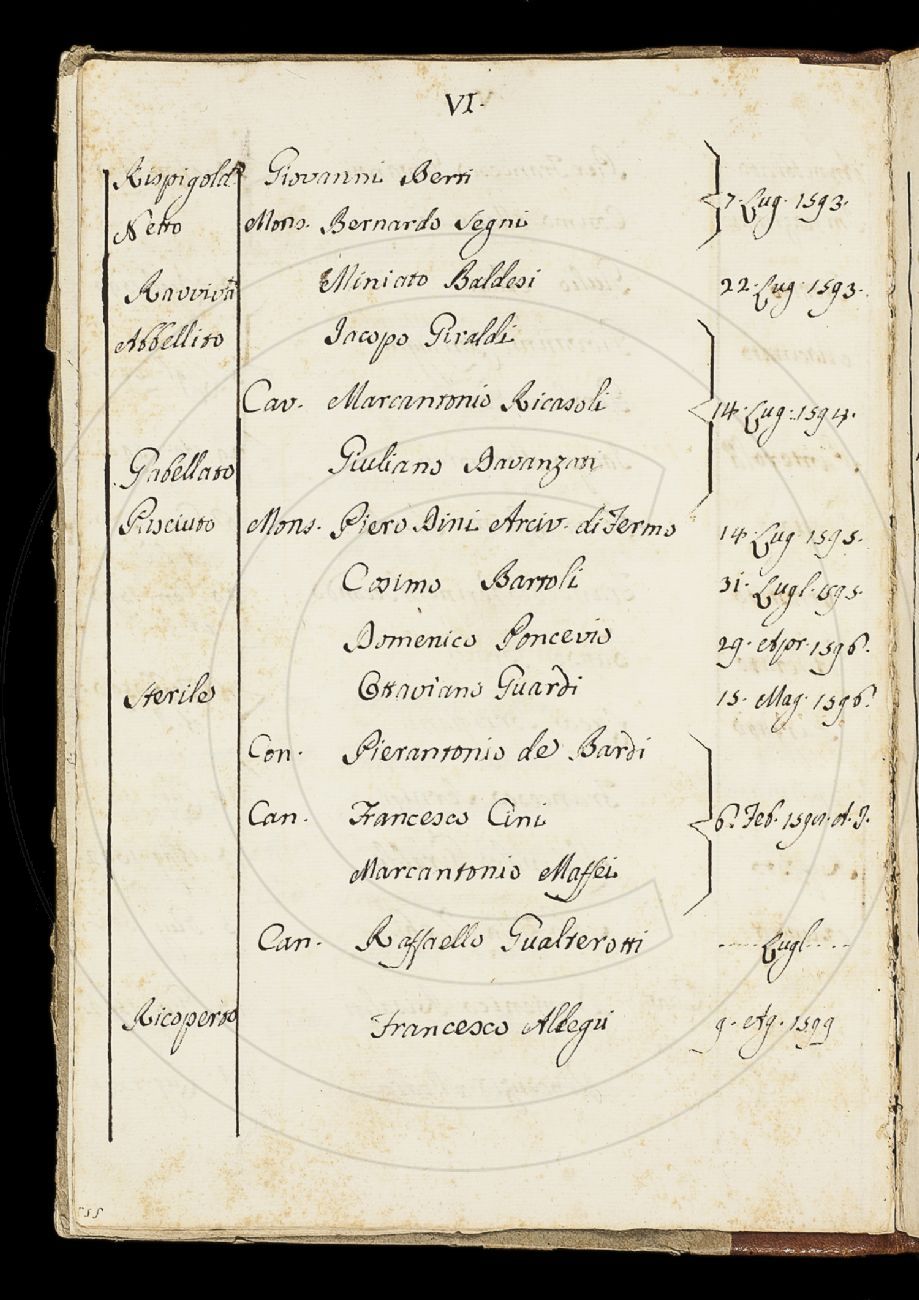 VI.
Rispigolat.º Giovanni Berti
Netto Mons. Bernardo Segni 7. Lug. 1593.
Ravviv.to Miniato Baldesi 22. Lug. 1593.
Abbellito Jacopo Giraldi
Cav. Marcantonio Ricasoli 14. Lug. 1594.
Gabellato Giuliano Davanzati
Pasciuto Mons. Piero Dini Arciv. di Fermo 14. Lug. 1595.
Cosimo Bartoli 31. Lugl. 1595.
Domenico Poncevio 29. Apr. 1596.
Sterile Ottaviano Guardi 15. Mag. 1596.
Con. Pierantonio de Bardi
Can. Francesco Cini 6. Feb.
Marcantonio Maffei
Can. Raffaello Gualterotti ..... Lugl .....
Ricoperto Francesco Allegri 9. Ag. 1599